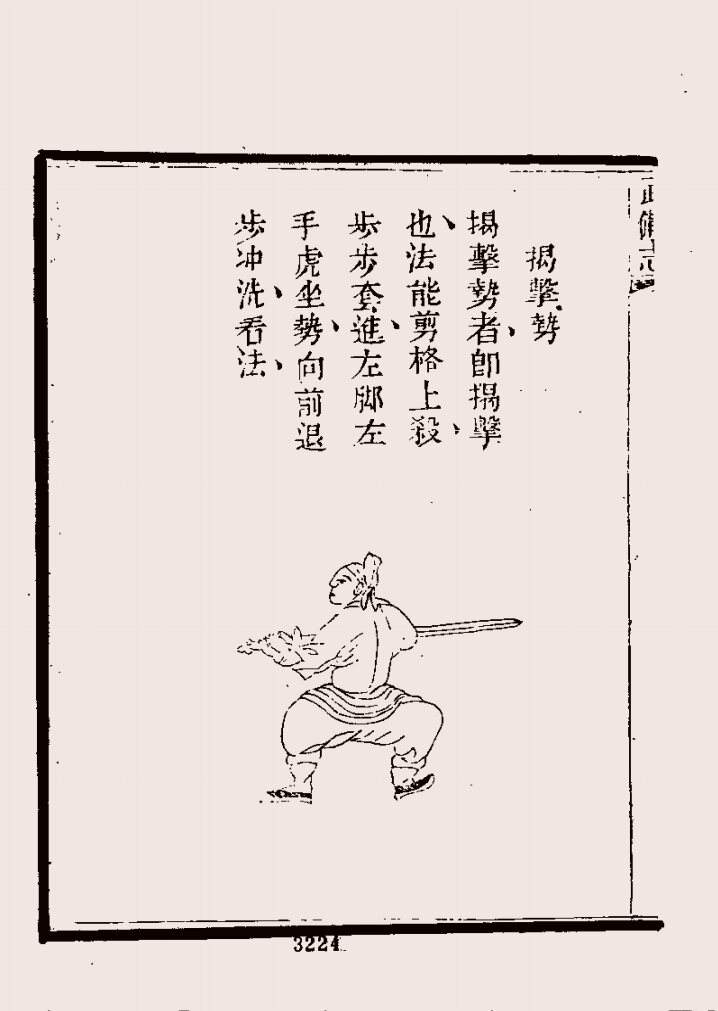 武備志
揭擊勢
揭擊勢者即揭擊
也法能剪格上殺
步步套進左脚左
手虎坐勢向前退
步冲洗看法
3224